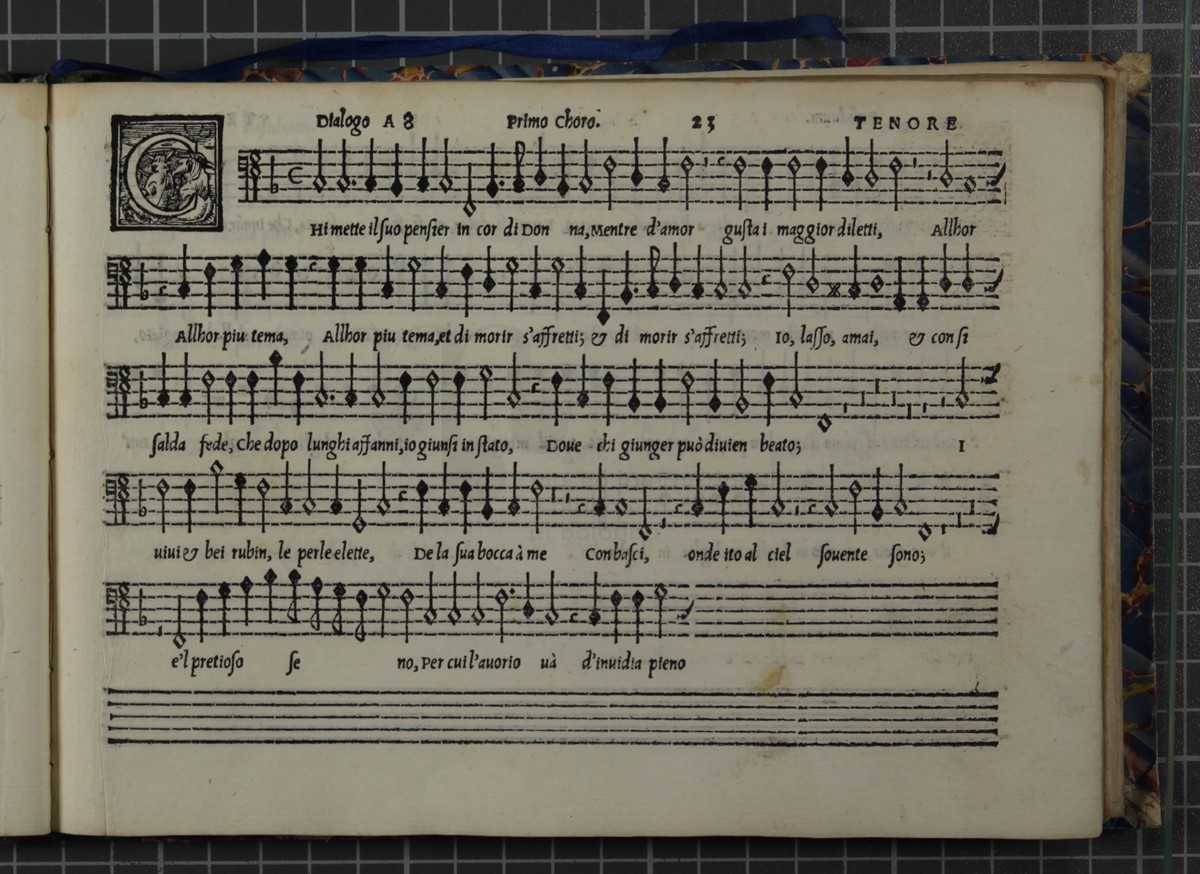 Dialogo A 8 Primo Choro. 23 TENORE
CHi mette il suo pensier in cor di Don na, Mentre d'amor gusta i maggior diletti, Allhor
Allhor piu tema, Allhor piu tema, et di morir s'affretti; & di morir s'affretti; Io, lasso, amai, & con si
salda fede, Che dopo lunghi affanni, io giunsi in stato, Doue chi giunger può diuien beato; I
uiui & bei rubin, le perle elette, De la sua bocca à me Con basci, onde ito al ciel souente sono;
e'l pretioso se no, Per cui l'auorio uà d'inuidia pieno